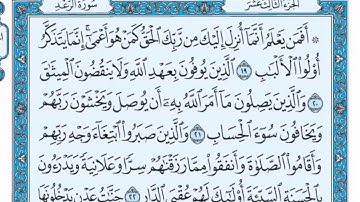 الجزء الثالث عشر سورة الرعد
۞ أَفَمَن يَعْلَمُ أَنَّمَا أُنزِلَ إِلَيْكَ مِن رَّبِّكَ الْحَقُّ كَمَنْ هُوَ أَعْمَىٰ إِنَّمَا يَتَذَكَّرُ
أُولُوا الْأَلْبَابِ ١٩ الَّذِينَ يُوفُونَ بِعَهْدِ اللَّهِ وَلَا يَنقُضُونَ الْمِيثَاقَ
٢٠ وَالَّذِينَ يَصِلُونَ مَا أَمَرَ اللَّهُ بِهِ أَن يُوصَلَ وَيَخْشَوْنَ رَبَّهُمْ
وَيَخَافُونَ سُوءَ الْحِسَابِ ٢١ وَالَّذِينَ صَبَرُوا ابْتِغَاءَ وَجْهِ رَبِّهِمْ
وَأَقَامُوا الصَّلَاةَ وَأَنفَقُوا مِمَّا رَزَقْنَاهُمْ سِرًّا وَعَلَانِيَةً وَيَدْرَءُونَ
بِالْحَسَنَةِ السَّيِّئَةَ أُولَٰئِكَ لَهُمْ عُقْبَى الدَّارِ ٢٢ جَنَّاتُ عَدْنٍ يَدْخُلُونَهَا